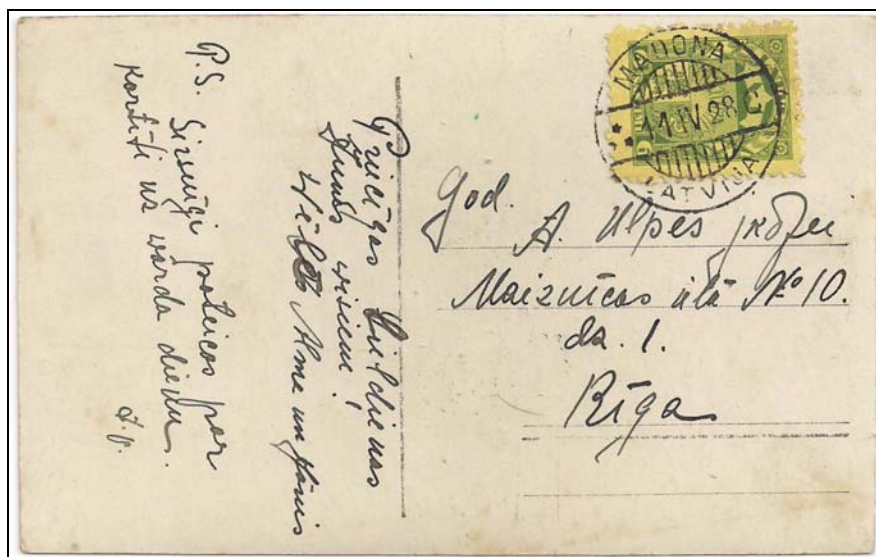 MADONA
14 IV 28 C
LATVIJA
God.
A. Ulpes jkdzei
Maiznīcas ielā № 10.
dz. 1.
Rīga
Priecīgas Lieldienas
Jums visiem!
Alma un Jānis
P.S. Sirsnīgi pateicos par
kartīti uz vārda dienu.